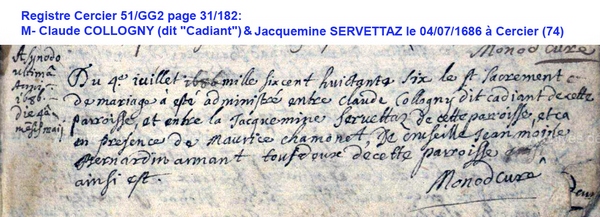 Registre Cercier 51/GG2 page 31/182:
M- Claude COLLOGNY (dit "Cadiant") & Jacquemine SERVETTAZ le 04/07/1686 à Cercier (74)
Monod Curé
A synodo
ultima
Anni
1686
die 4ª
mensis maij
Du 4e juillet 1686 mille six cent huictante six le st Sacrement
de mariage a este administré entre claude Collogny dit cadiant de cette
parroisse et entre la Jacquemine Servettaz de cette parroisse, et ca
en presence de Maurice chamonet, de Jean moine
Bernardin annant touts deux de cette parroisse
ainsi est.
Monod curé